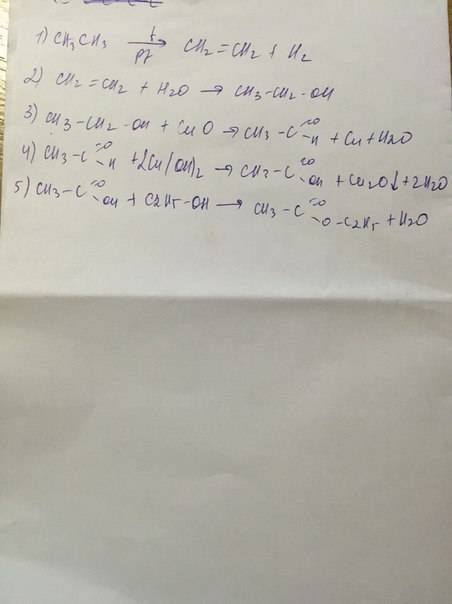 1) CH3CH3 t→Pt CH2=CH2 + H2
2) CH2=CH2 + H2O → CH3-CH2-OH
3) CH3-CH2-OH + CuO → CH3-C=O-H + Cu + H2O
4) CH3-C=O-H + 2Cu(OH)2 → CH3-C=O-OH + Cu2O↓ + 2H2O
5) CH3-C=O-OH + C2H5-OH → CH3-C=O-O-C2H5 + H2O